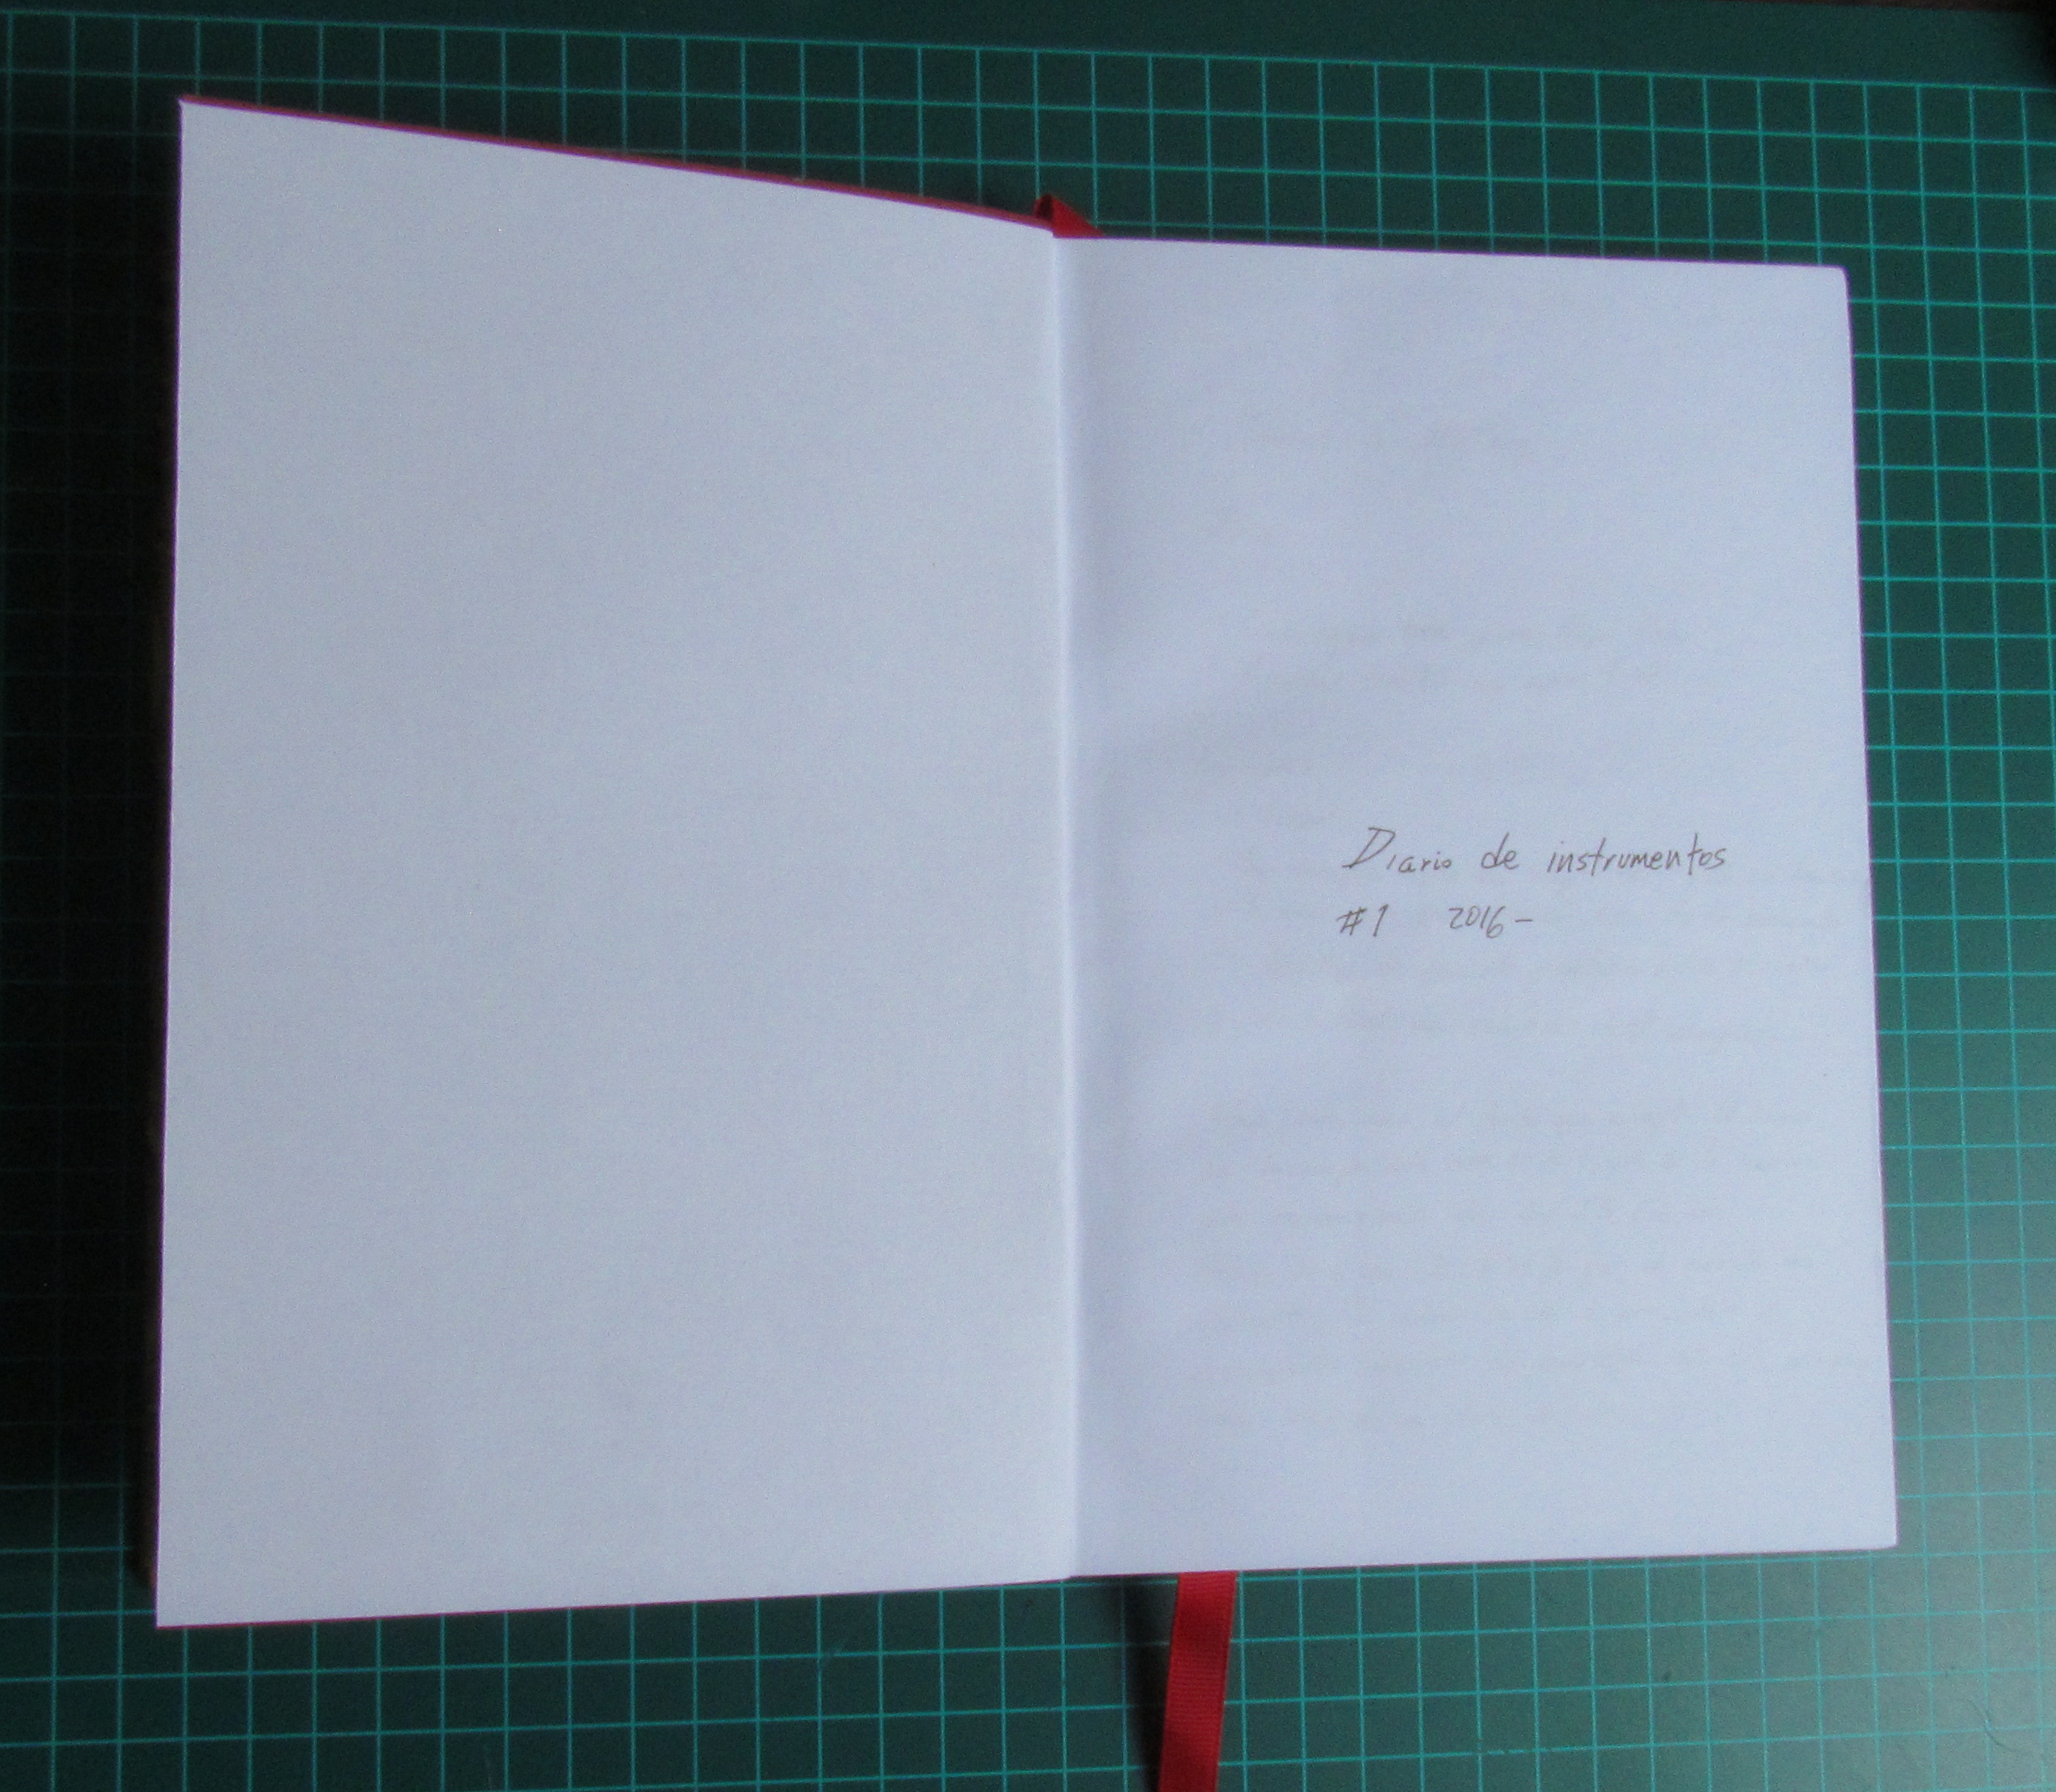 Diario de instrumentos
#1 2016-